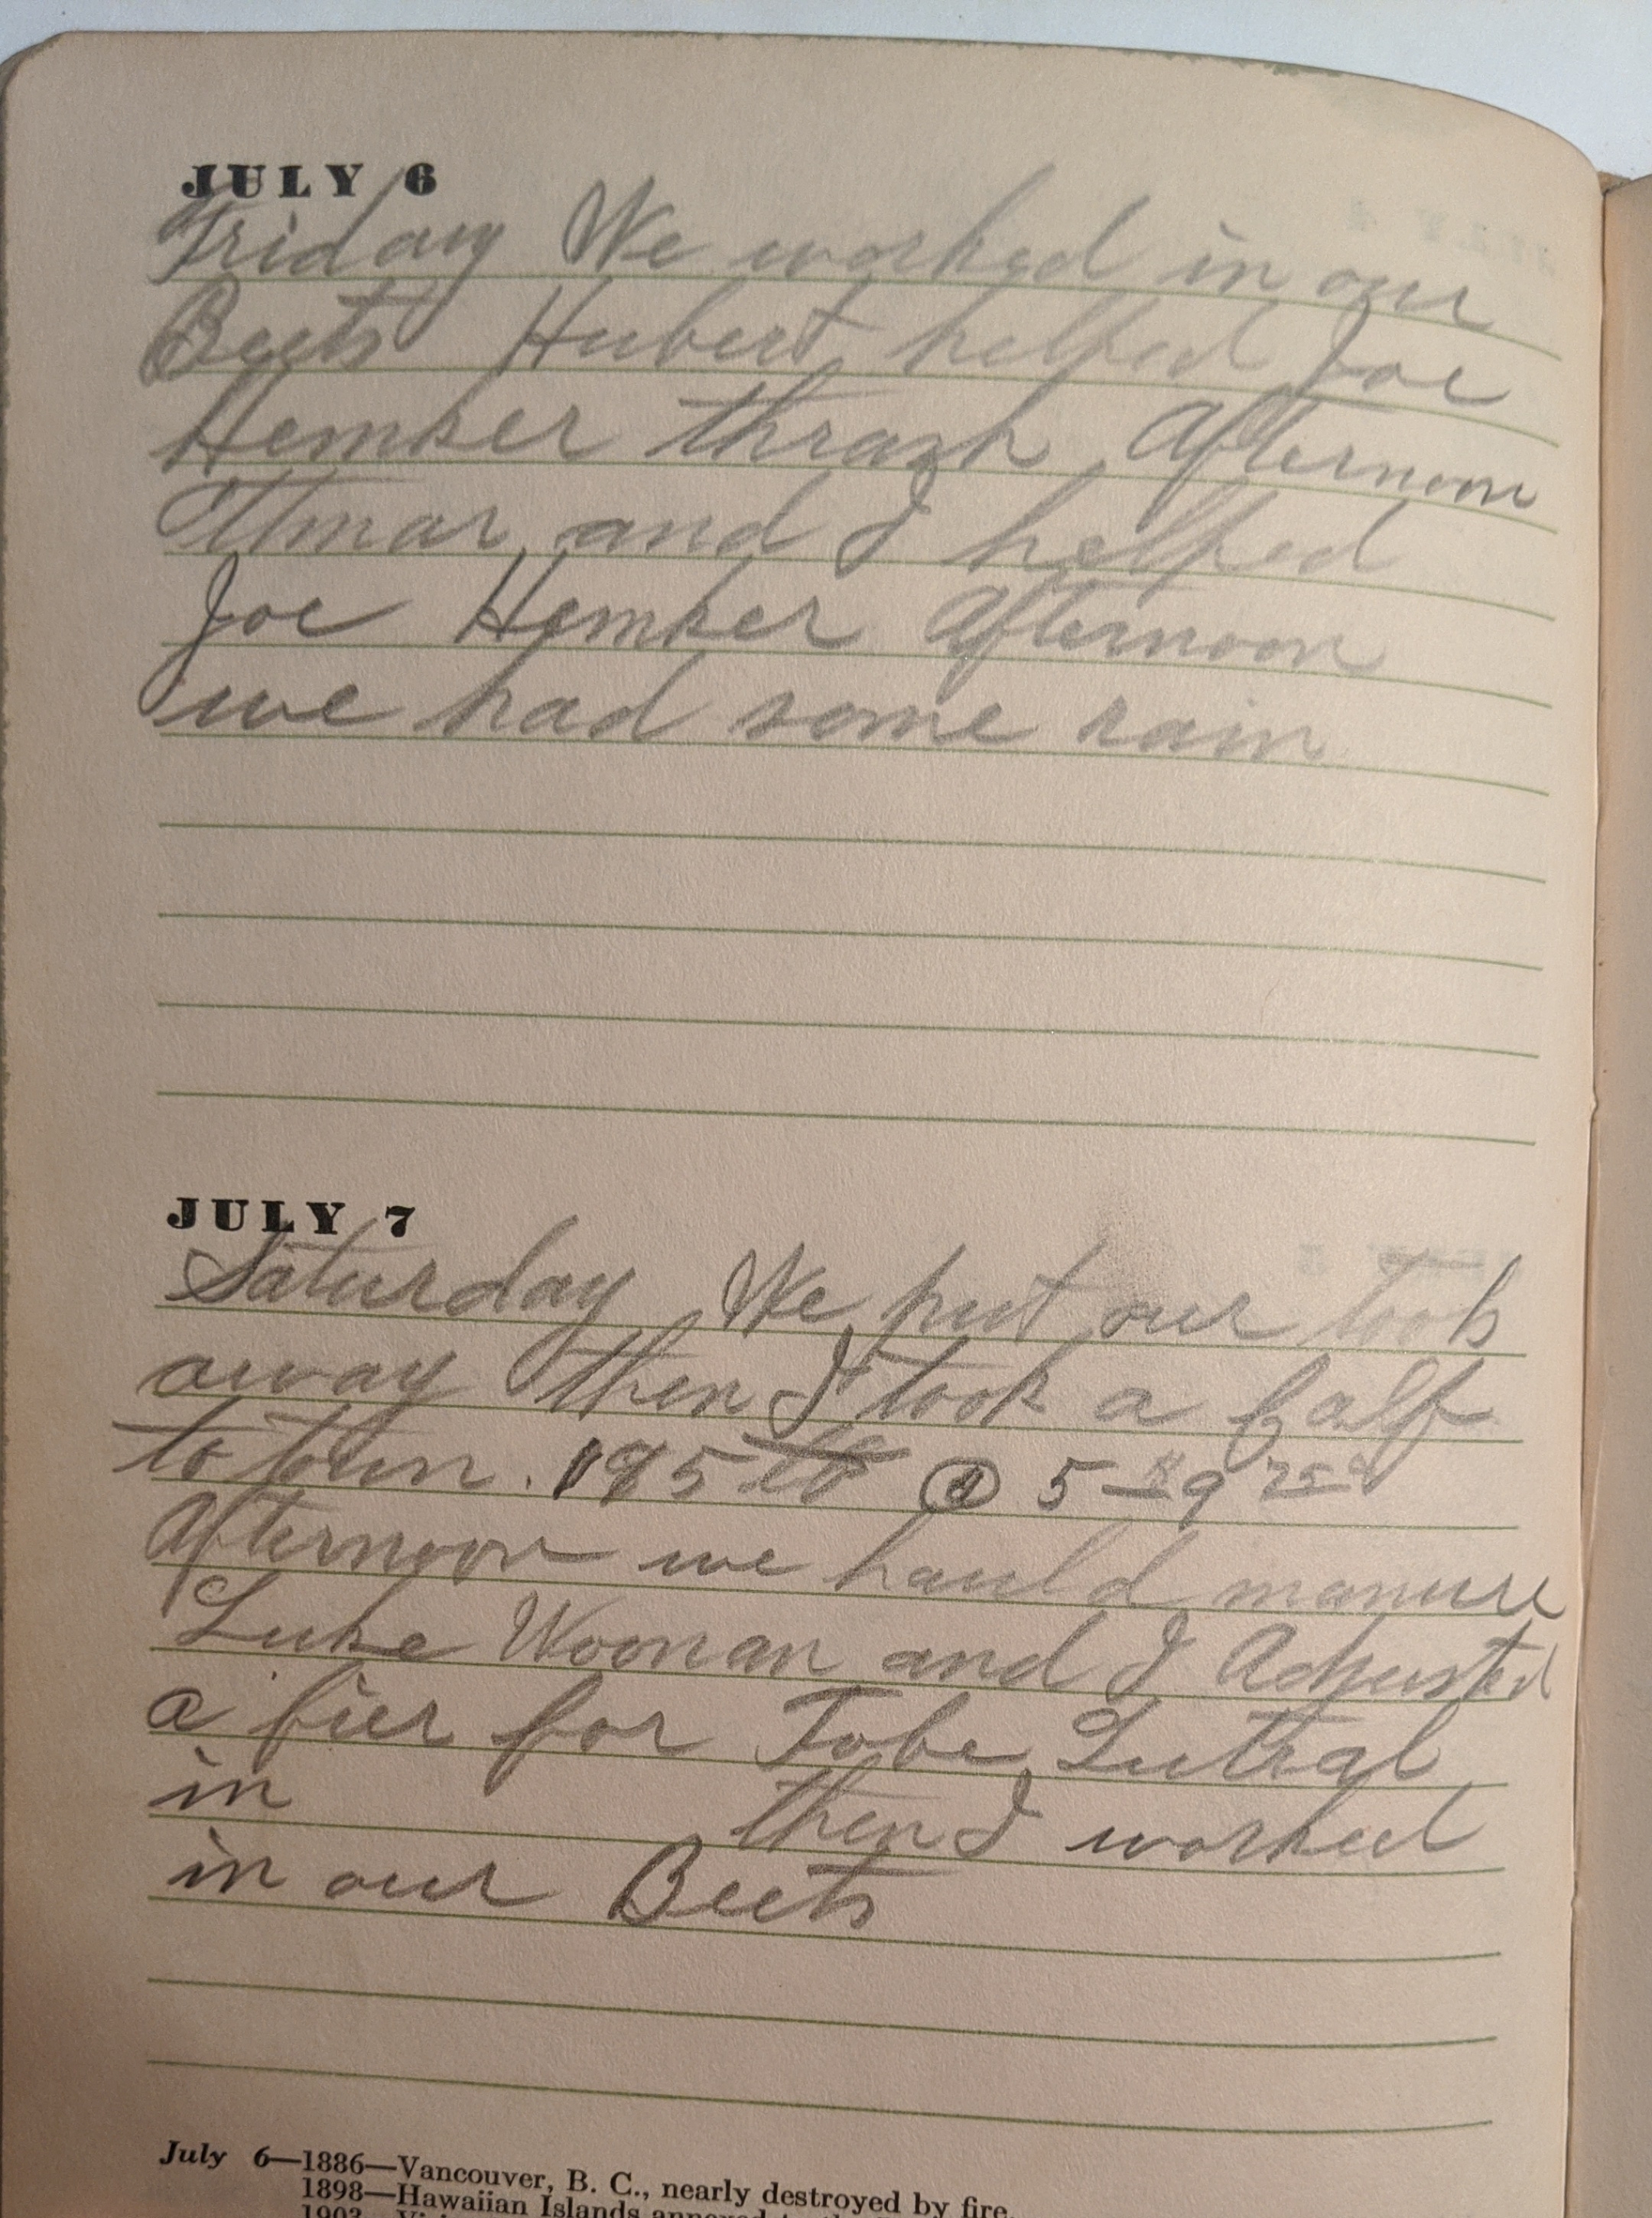 JULY 6
Friday We worked in our
Beets Hubert helped Joe
Hemker thrash Afternoon
Ttmar and I helped
Joe Hemker Afternoon
we had some rain
JULY 7
Saturday We put our tools
away then I took a Calf
to town. 195 lb @ 5 9 75
Afternoon we hauld manure
Luke Woonan and I Adjusted
a fier for Tobe Luttral
in then I worked
in our Beets
July 6—1886—Vancouver, B. C., nearly destroyed by fire.
1898—Hawaiian Islands annexed to the
1903